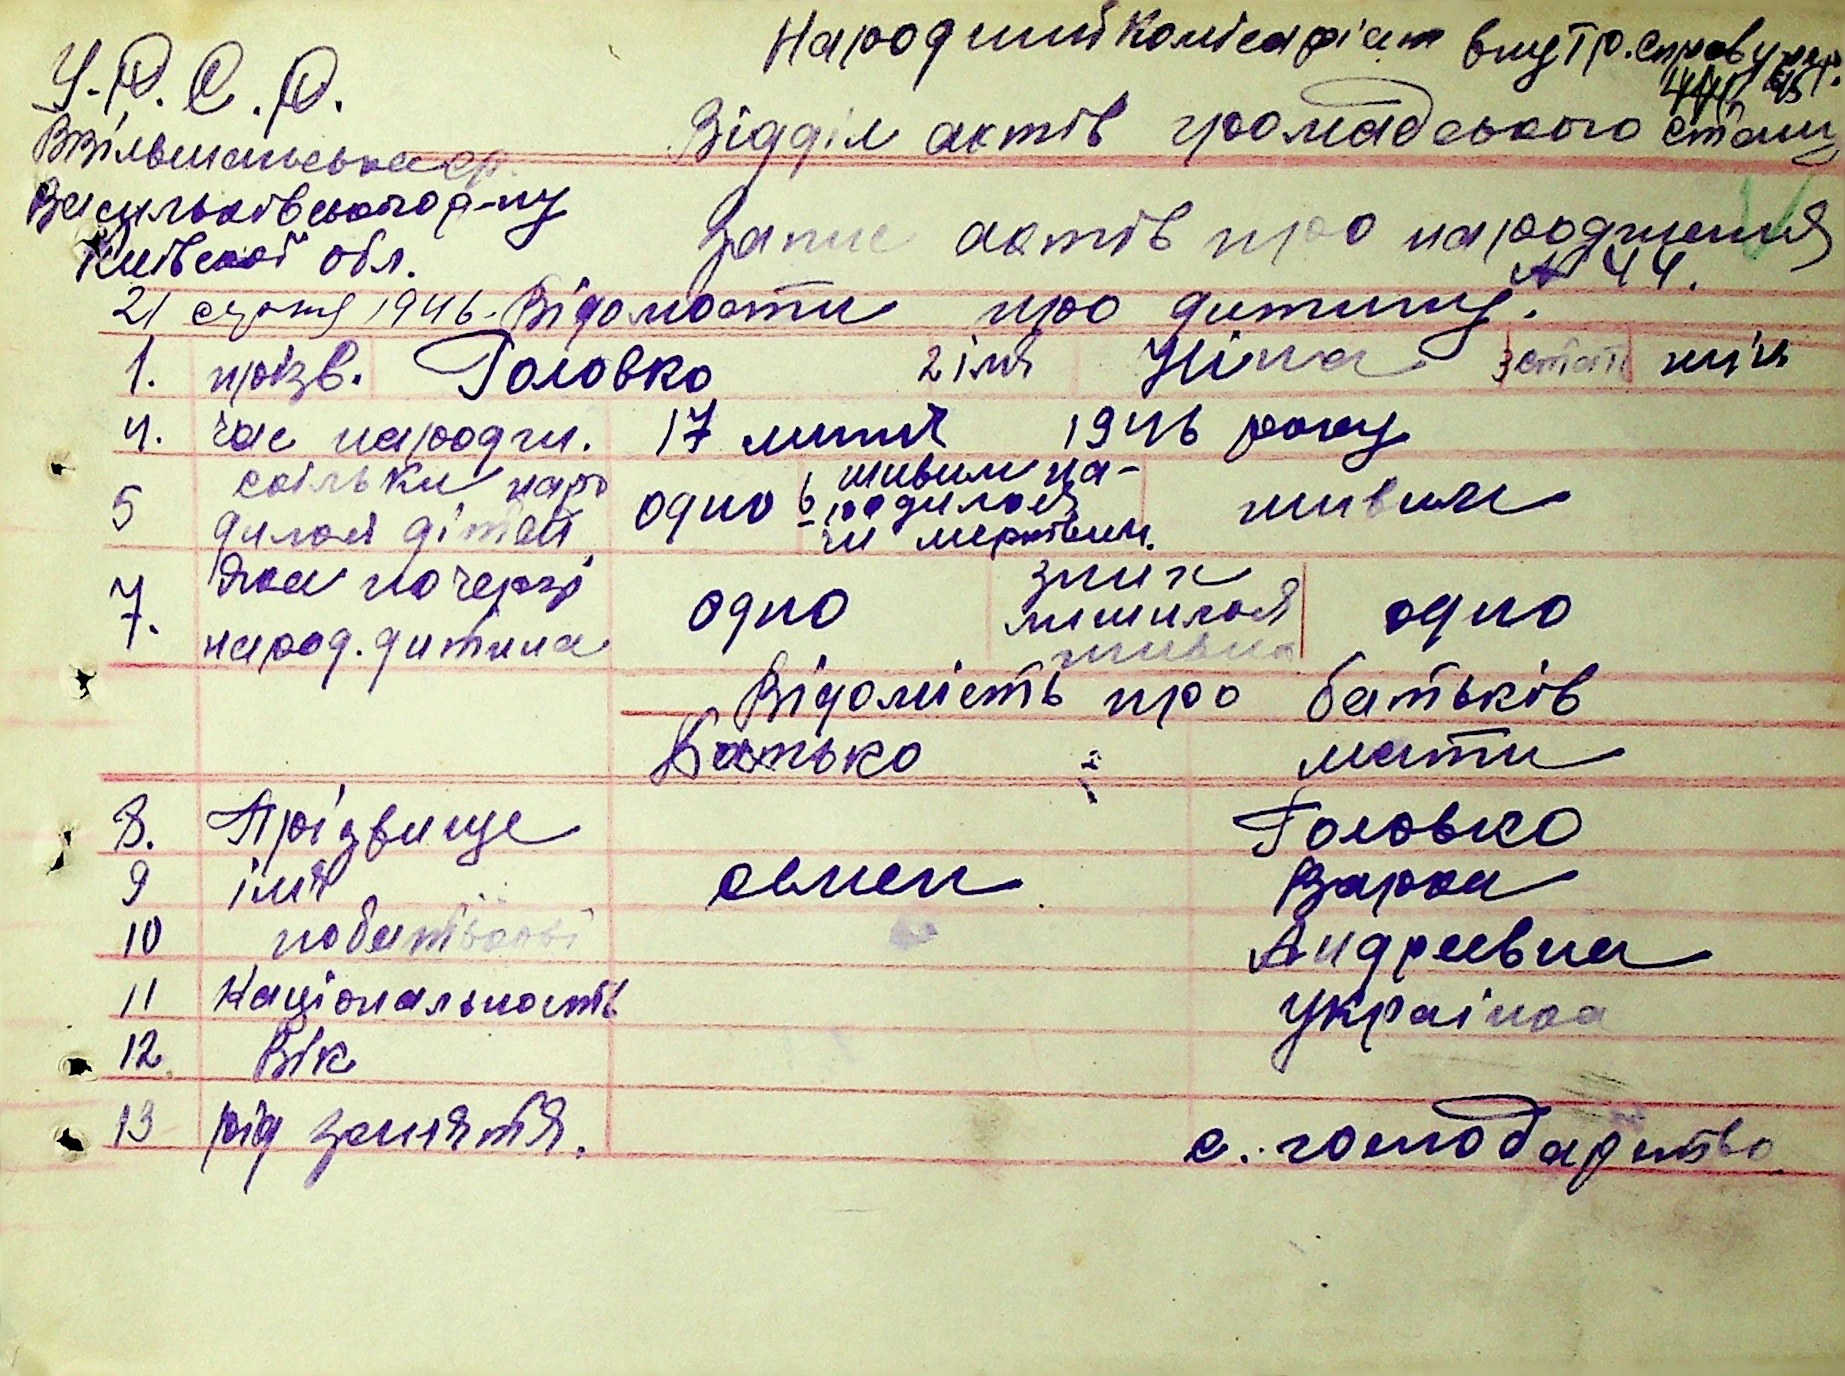 Народний Комісаріат внутр. справ
У.Р.С.Р.
Відділ актів громадського стану
Васильківського р-ну
Запис актів про народження
Київської обл.
№ 44.
21 серпня 1946. Відомости про дитину.
1. прізв. Головко 2 імя Ніна 3 стать жін
4. час народжн. 17 липня 1946 року
5 скільки наро
дилося дітей одно 6 живим на-
родилося
чи мертвим. живим
7. Яка по черзі
народ. дитина одно з них
лишилося
живих одно
Відомість про батьків
Батько : мати
8. Прізвище Головко
9 імя Варка
10 по батькові Андреевна
11 Національность Українка
12 Вік
13 рід заняття. с. господарство